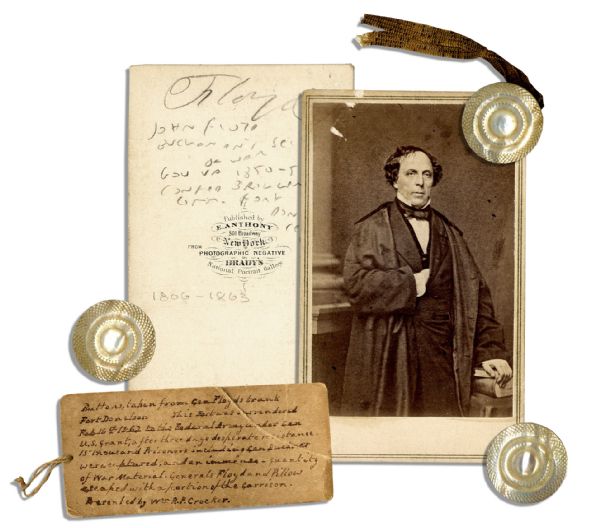 Floyd
JOHN FLOYD
BUCHANAN'S SEC
OF WAR
GOV VA 1850-5
CONFED BRIG GEN
COMM. FORT
DON
Published by
E. ANTHONY
501 Broadway
New York
FROM
PHOTOGRAPHIC NEGATIVE
BRADY'S
National Portrait Gallery
1806-1863
Buttons, taken from Gen Floyds trunk
Fort Donelson This Fort was surrendered
Feb 16th 1862 to the Federal Army under Gen
U.S. Grant, after three days desperate resistance
15 thousand Prisoners including Gen Buckner
were captured, and an immense quantity
of War Material. Generals Floyd and Pillow
escaped with a portion of the Garrison.
Presented by Wm R.P. Crocker.